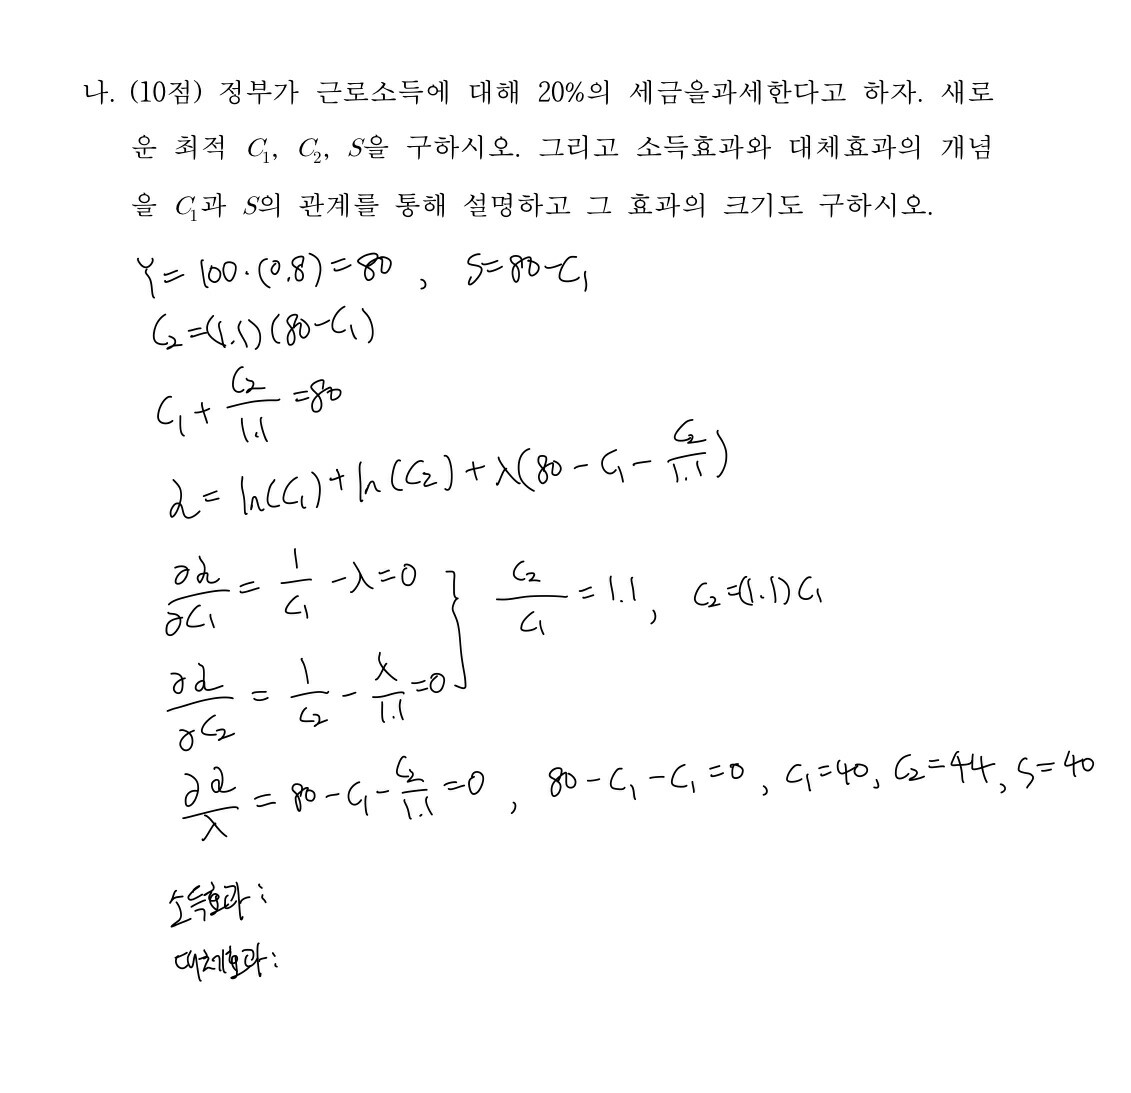 나. (10점) 정부가 근로소득에 대해 20%의 세금을과세한다고 하자. 새로
운 최적 C₁, C₂, S을 구하시오. 그리고 소득효과와 대체효과의 개념
을 C₁과 S의 관계를 통해 설명하고 그 효과의 크기도 구하시오.
Y = 100·(0.8) = 80 , S = 80 - C₁
C₂ = (1.1)(80 - C₁)
C₁ + C₂/1.1 = 80
ℒ = ln(C₁) + ln(C₂) + λ(80 - C₁ - C₂/1.1)
∂ℒ/∂C₁ = 1/C₁ - λ = 0 } C₂/C₁ = 1.1 , C₂ = (1.1)C₁
∂ℒ/∂C₂ = 1/C₂ - λ/1.1 = 0
∂ℒ/λ = 80 - C₁ - C₂/1.1 = 0 , 80 - C₁ - C₁ = 0 , C₁ = 40, C₂ = 44, S = 40
소득효과:
대체효과: